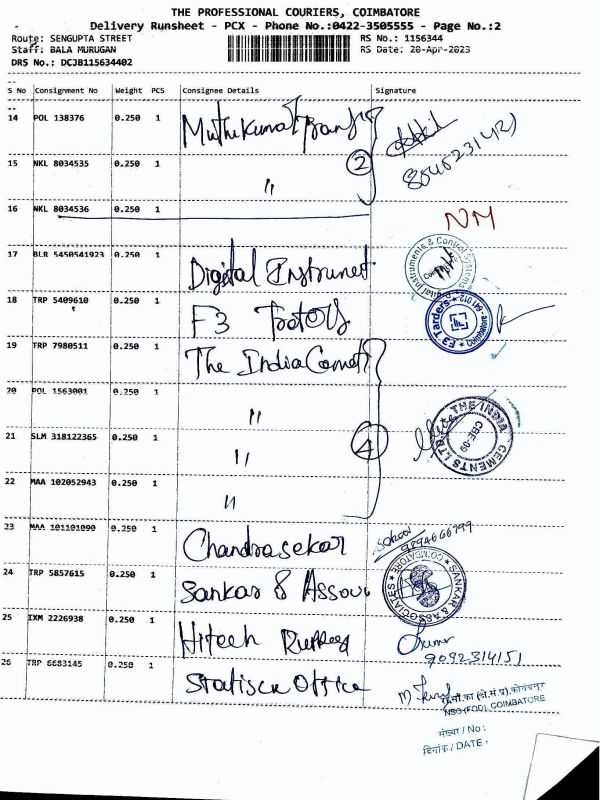 THE PROFESSIONAL COURIERS, COIMBATORE
Delivery Runsheet - PCX - Phone No.:0422-3505555 - Page No.:2
Route: SENGUPTA STREET RS No.: 1156344
Staff: BALA MURUGAN RS Date: 20-Apr-2023
DRS No.: DCJB115634402
S No Consignment No Weight PCS Consignee Details Signature
14 POL 138376 0.250 1 Muthukumar
15 NKL 8034535 0.250 1 〃 2
16 NKL 8034536 0.250 1 NM
17 BLR 5450541923 0.250 1 Digital Instrument
18 TRP 5409610 0.250 1 F3
19 TRP 7980511 0.250 1 The India Cement
20 POL 1563001 0.250 1 〃
21 SLM 318122365 0.250 1 〃 4
22 MAA 102052943 0.250 1 〃
23 MAA 101101090 0.250 1 Chandrasekar
24 TRP 5857615 0.250 1 Sankar & Assou
25 IXM 2226938 0.250 1 Hitech
9092314151
26 TRP 6683145 0.250 1 Office
Digital Instruments & Control Systems
F3 Tarders
THE INDIA CEMENTS LTD.
CBE-09
SANKAR & ASSOCIATES
COIMBATORE
NSO (FOD), COIMBATORE
संख्या / No :
दिनांक / DATE :